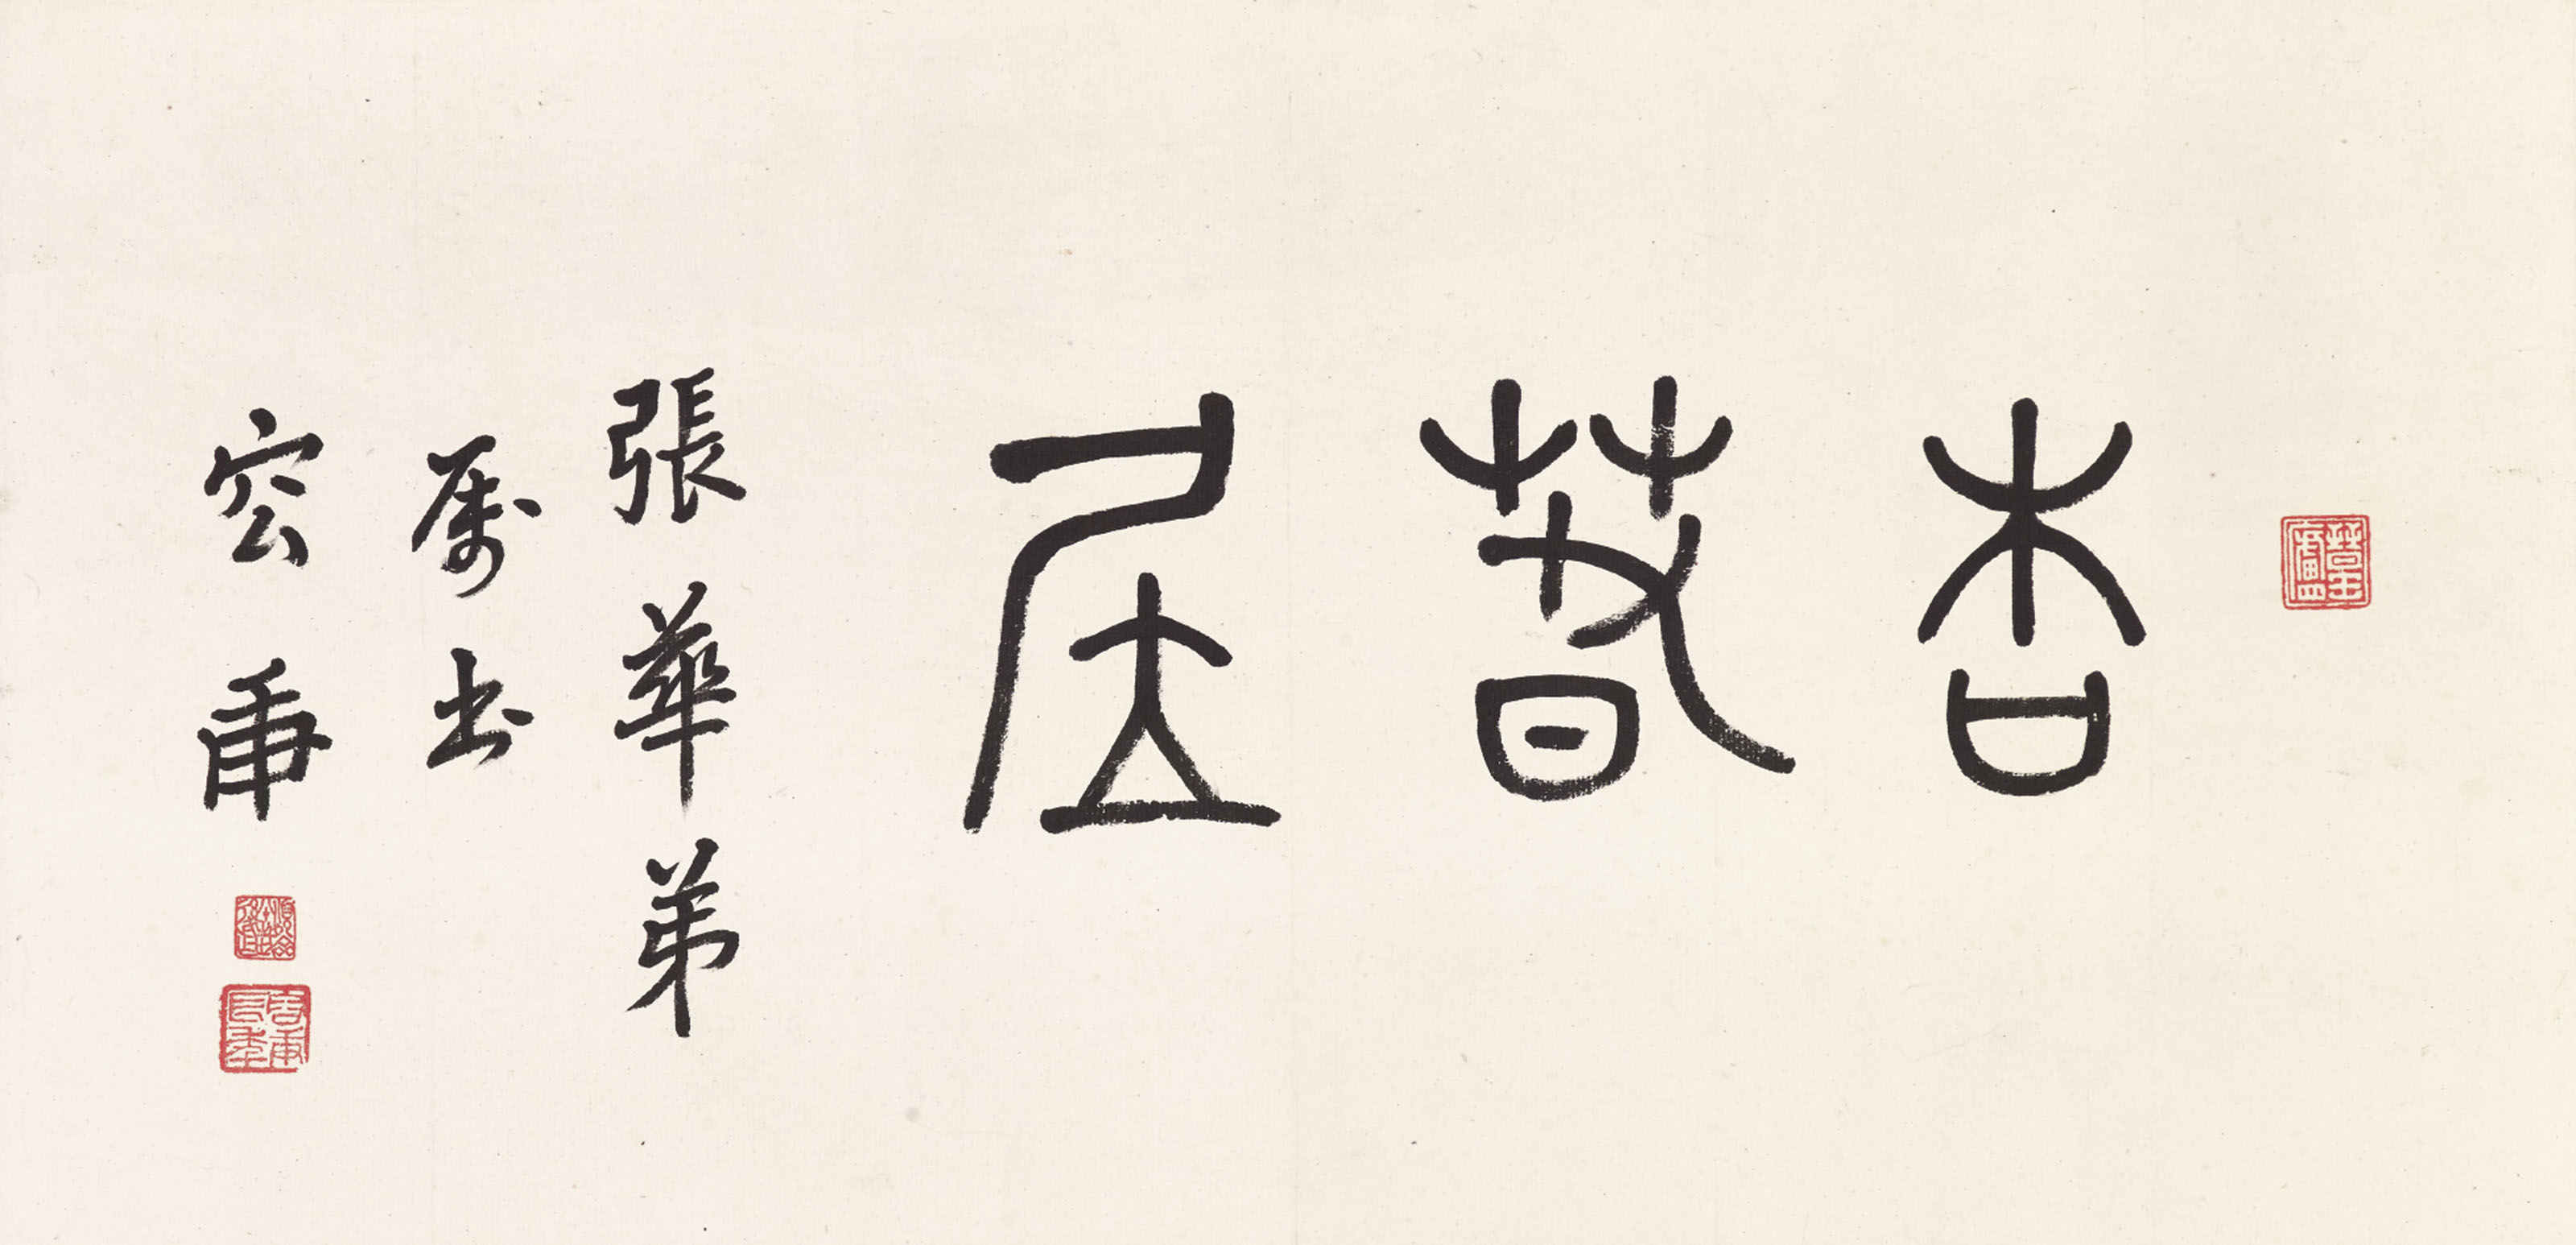 杏萅居
張華弟
属書
容庚